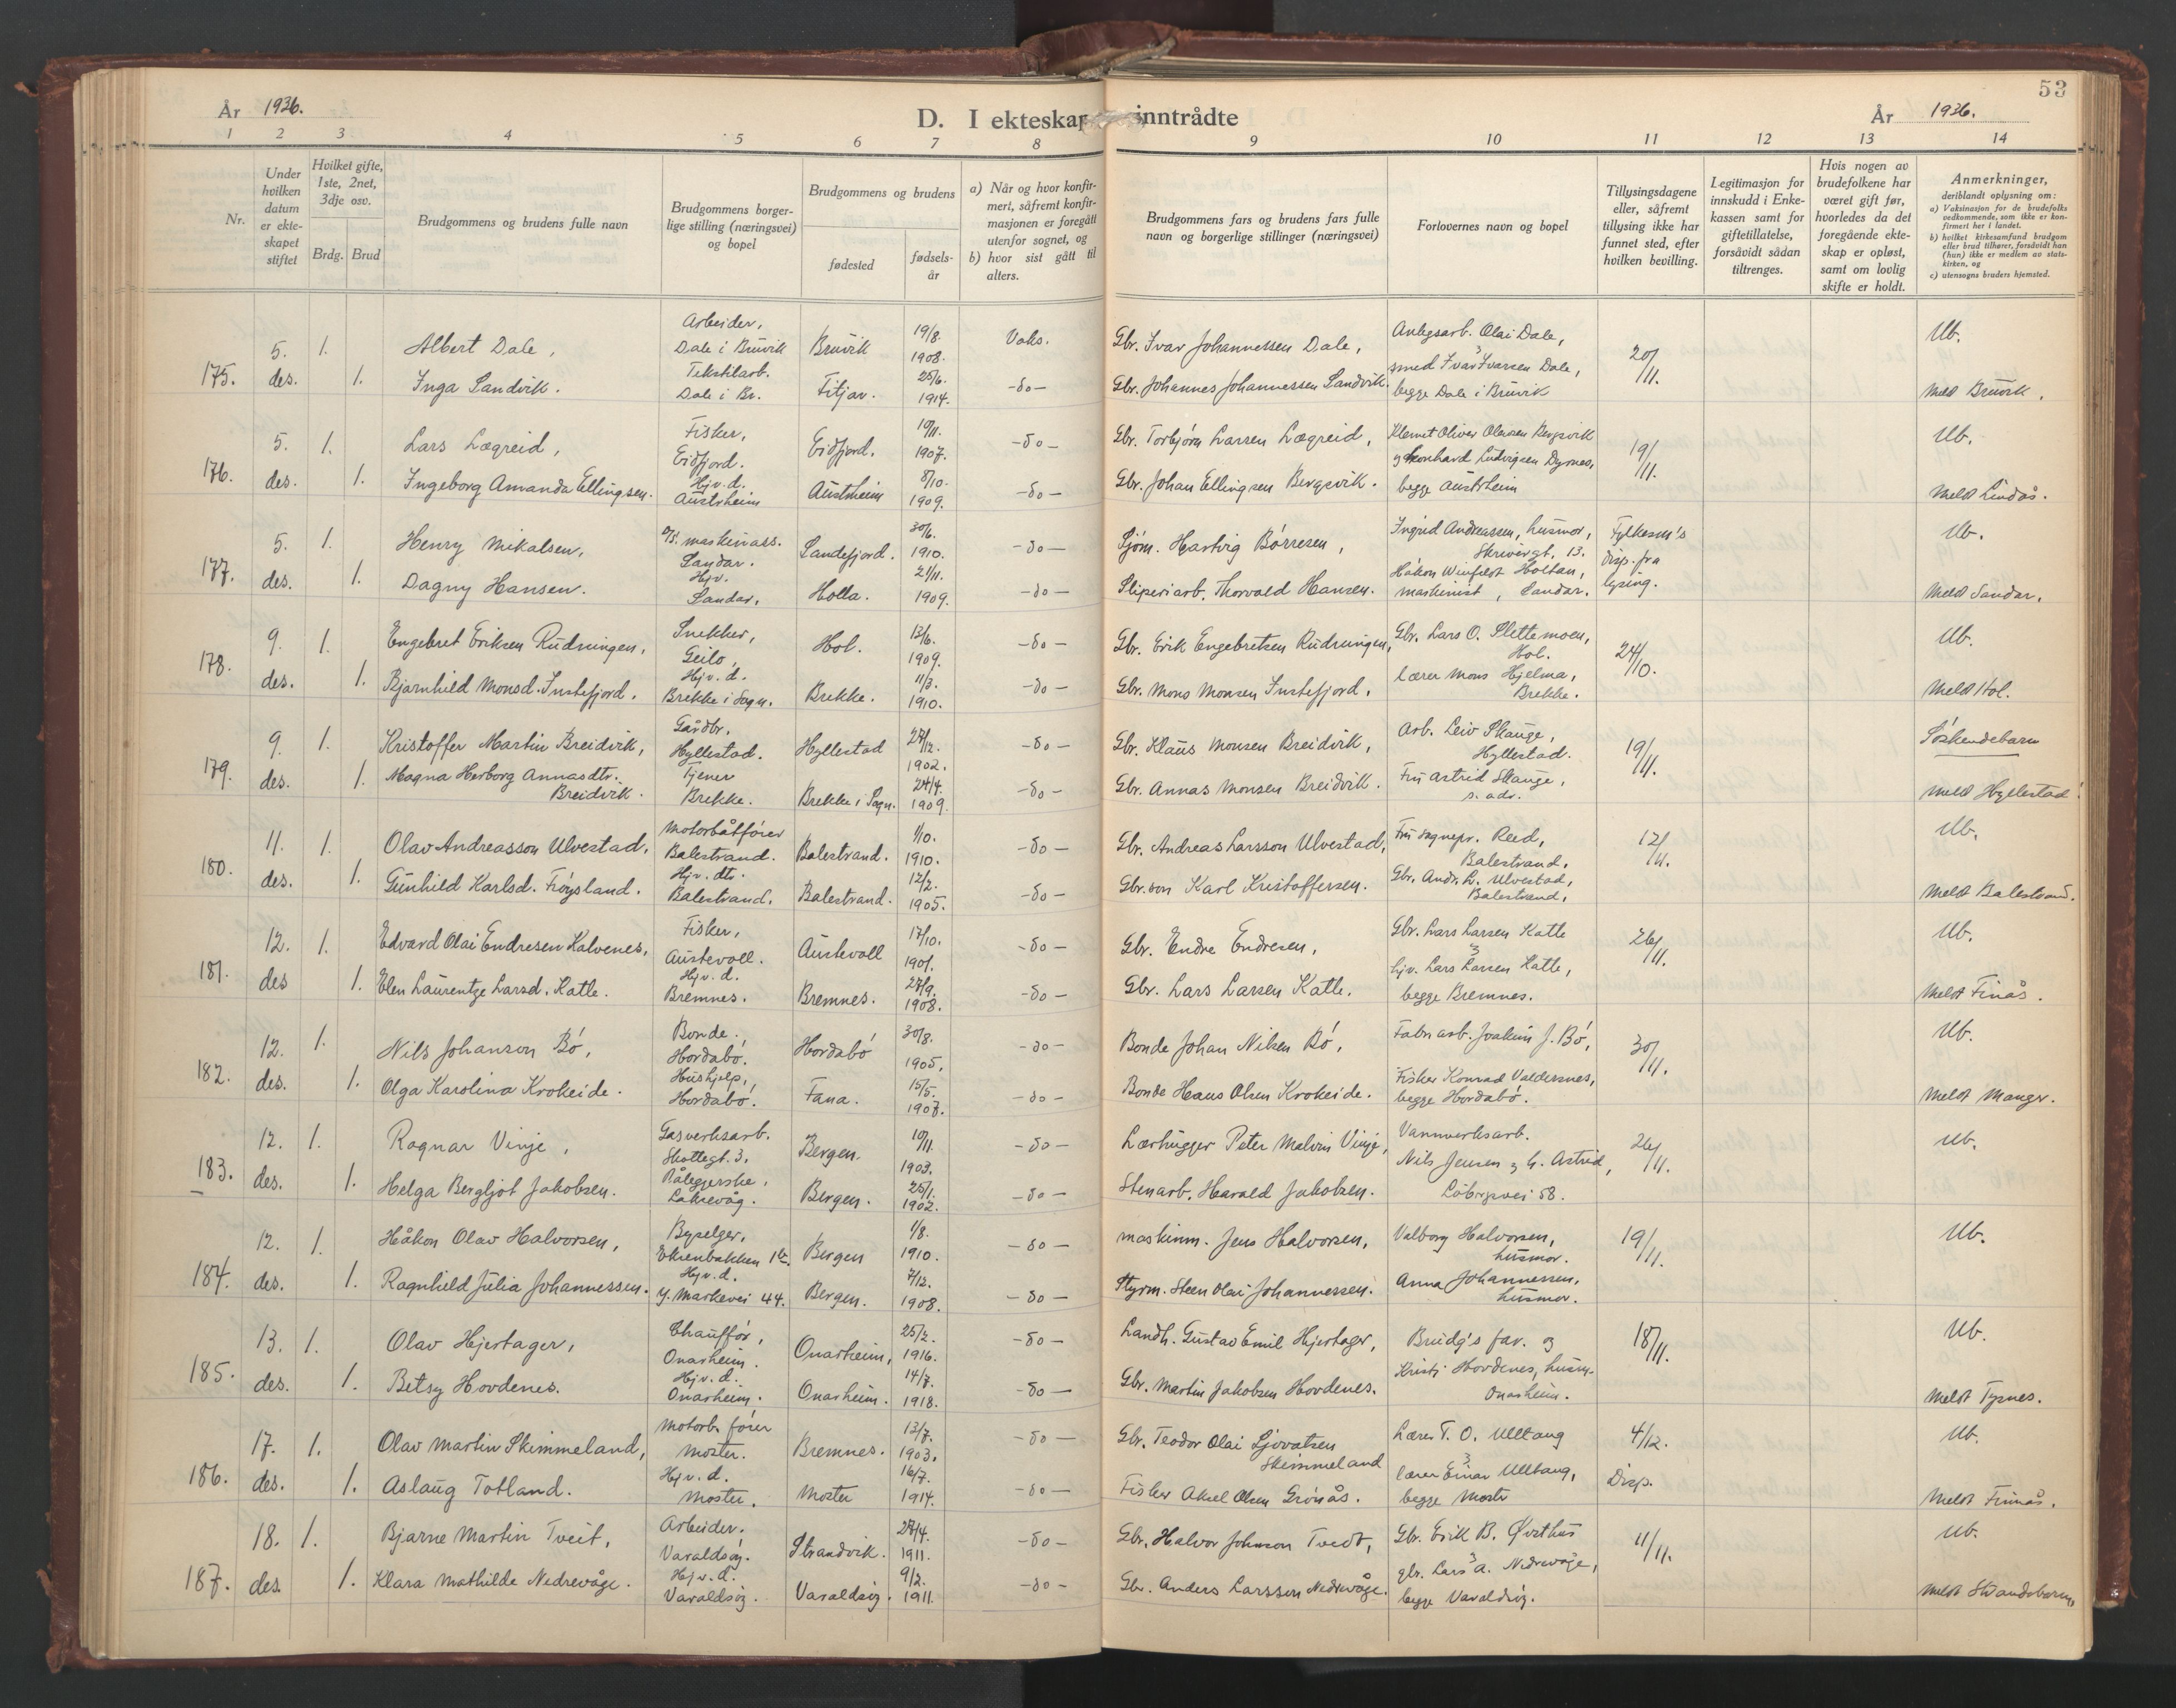 53
År 1936.
D. I ekteskap inntrådte
År 1936.
1 2 3 4 5 6 7 8 9 10 11 12 13 14
Nr.
Under hvilken datum er ekteskapet stiftet
Hvilket gifte, 1ste, 2net, 3dje osv.
Brdg. Brud
Brudgommens og brudens fulle navn
Brudgommens borgerlige stilling (næringsvei) og bopel
Brudgommens og brudens
fødested
fødselsår
a) Når og hvor konfirmert, såfremt konfirmasjonen er foregått utenfor sognet, og
b) hvor sist gått til alters.
Brudgommens fars og brudens fars fulle navn og borgerlige stillinger (næringsvei)
Forlovernes navn og bopel
Tillysingsdagene eller, såfremt tillysing ikke har funnet sted, efter hvilken bevilling.
Legitimasjon for innskudd i Enkekassen samt for giftetillatelse, forsåvidt sådan tiltrenges.
Hvis nogen av brudefolkene har været gift før, hvorledes da det foregående ekteskap er opløst, samt om lovlig skifte er holdt.
Anmerkninger, deriblandt oplysning om:
a) Vaksinasjon for de brudefolks vedkommende, som ikke er konfirmert her i landet.
b) hvilket kirkesamfund brudgom eller brud tilhører, forsåvidt han (hun) ikke er medlem av statskirken, og
c) utensogns bruders hjemsted.
175. 5. des. 1. Albert Dale, Arbeider, Dale i Bruvik Bruvik 19/8. 1908. Voks. Gbr. Ivar Johannessen Dale, Anlegsarb. Olai Dale, 20/11. Ub.
1. Inga Sandvik. Tekstilarb. Dale i Br. Fitjar. 25/6. 1914. -do- Gbr. Johannes Johannessen Sandvik. smed Ivar Ivarsen Dale, begge Dale i Bruvik Meld Bruvik.
176. 5. des. 1. Lars Lægreid, Fisker, Eidfjord. Eidfjord. 10/11. 1907. -do- Gbr. Torbjørn Larsen Lægreid, Klemet Oliver Olausen Bergsvik 19/11. Ub.
1. Ingeborg Amanda Ellingsen. Hjv. d. Austrheim Austrheim 8/10. 1909. -do- Gbr. Johan Ellingsen Bergsvik. og Leonhard Ludvigsen Dyrnes, begge Austrheim Meld Lindås.
177. 5. des. 1. Henry Mikalsen, maskinass. Sandar. Sandefjord. 30/6. 1910. -do- Sjøm. Hartvig Børresen, Ingrid Andreassen, husmor, Skrivergt. 13. Fylkesm's disp. fra lysing. Ub.
1. Dagny Hansen. Hjv. Sandar. Holla. 21/11. 1909. -do- Sliperiarb. Thorvald Hansen. Håkon Winfeldt Holtan, maskinist, Sandar. Meld Sandar.
178. 9. des. 1. Engebret Eriksen Rudningen, Snekker, Geilo, Hol. 13/6. 1909. -do- Gbr. Erik Engebretsen Rudningen, Gbr. Lars O. Slettemoen, Hol. 24/10. Ub.
1. Bjarnhild Monsd. Instefjord. Hjv. d. Brekke i Sogn. Brekke. 11/3. 1910. -do- Gbr. Mons Monsen Instefjord. lærer Mons Hjelma, Brekke. Meld Hol.
179. 9. des. 1. Kristoffer Martin Breidvik, Gårdbr. Hyllestad. Hyllestad 27/12. 1902. -do- Gbr. Klaus Monsen Breidvik, Arb. Leiv Skauge, Hyllestad. 19/11. Søskendebarn
1. Magna Herborg Annasdtr. Breidvik. Tjener Brekke. Brekke i Sogn. 24/4. 1909. -do- Gbr. Annas Monsen Breidvik. Fru Astrid Skauge, s. adr. Meld Hyllestad.
180. 11. des. 1. Olav Andreasson Ulvestad, Motorbåtfører Balestrand. Balestrand. 1/10. 1910. -do- Gbr. Andreas Larsson Ulvestad, Fru sognepr. Reed, Balestrand, Ub.
1. Gunhild Karlsd. Frøysland. Hjv. dtr. Balestrand. Balestrand. 12/2. 1905. -do- Gbr.søn Karl Kristoffersen. Gbr. Andr. L. Ulvestad, Balestrand, Meld Balestrand.
181. 12. des 1. Edvard Olai Endresen Kalvenes, Fisker, Austevoll. Austevoll 17/10. 1901. -do- Gbr. Endre Endresen, Gbr. Lars Larsen Katle 26/11. Ub.
1. Elen Laurentze Larsd. Katle. Hjv. d. Bremnes. Bremnes. 27/9. 1908. -do- Gbr. Lars Larsen Katle. og hjv. Lars Larsen Katle, begge Bremnes. Meldt Finås.
182. 12. des. 1. Nils Johanson Bø, Bonde. Hordabø. Hordabø 30/8. 1905. -do- Bonde Johan Nilsen Bø, Fabr.arb. Joakim J. Bø, 30/11. Ub.
1. Olga Karolina Krokeide. Hushjelp, Hordabø. Fana. 15/5. 1907. -do- Bonde Hans Olsen Krokeide. Fisker Konrad Valdersnes, begge Hordabø. Meldt Manger.
183. 12. des. 1. Ragnar Vinje, Gasverksarb. Skottegt. 3. Bergen. 10/11. 1903. -do- Lærhugger Peter Malvin Vinje, Vannverksarb. Nils Jensen og h. Astrid, 26/11. Ub.
1. Helga Bergljot Jakobsen. Påleggerske, Laksevåg. Bergen. 25/1. 1902. -do- Stenarb. Harald Jakobsen. Løbergsvei 58.
184. 12. des. 1. Håkon Olav Halvorsen, Byselger, Ekrenbakken 1b. Bergen 1/8. 1910. -do- maskinm. Jens Halvorsen, Valborg Halvorsen, husmor. 19/11. Ub.
1. Ragnhild Julia Johannessen. Hjv. d. Y. Markevei 44. Bergen. 7/12. 1908. -do- Styrm. Steen Olai Johannessen. Anna Johannessen, husmor.
185. 13. des. 1. Olav Hjertager, Chauffør, Onarheim. Onarheim, 25/2. 1916. -do- Landh. Gustav Emil Hjertager, Brudg's far. og 18/11. Ub.
1. Betsy Hovdenes. Hjv. d. Onarheim. Onarheim. 14/7. 1918. -do- Gbr. Martin Jakobsen Hovdenes. Kristi Hovdenes, husm. Onarheim. Meldt Tysnes.
186. 17. des. 1. Olav Martin Skimmeland, Motorb. fører Moster. Bremnes. 13/7. 1903. -do- Gbr. Teodor Olai Sjovatsen Skimmeland Lærer T. O. Ulltang 4/12. Ub.
1. Aslaug Totland. Hjv. d. Moster. Moster 16/7. 1914. -do- Fisker Aksel Olsen Grønås. og lærer Einar Ulltang, begge Moster Disp. Meldt Finnås.
187. 18. des. 1. Bjarne Martin Tveit, Arbeider. Varaldsøy. Strandvik. 27/4. 1911. -do- Gbr. Halvor Johnson Tvedt, Gbr. Erik B. Qvithus 11/11. Ub.
1. Klara Mathilde Nedrevåge. Hjv. d. Varaldsøy. Varaldsøy. 9/2. 1911. -do- Gbr. Anders Larsson Nedrevåge. og gbr. Lars A. Nedrevåge, begge Varaldsøy. Meldt Strandebarm,